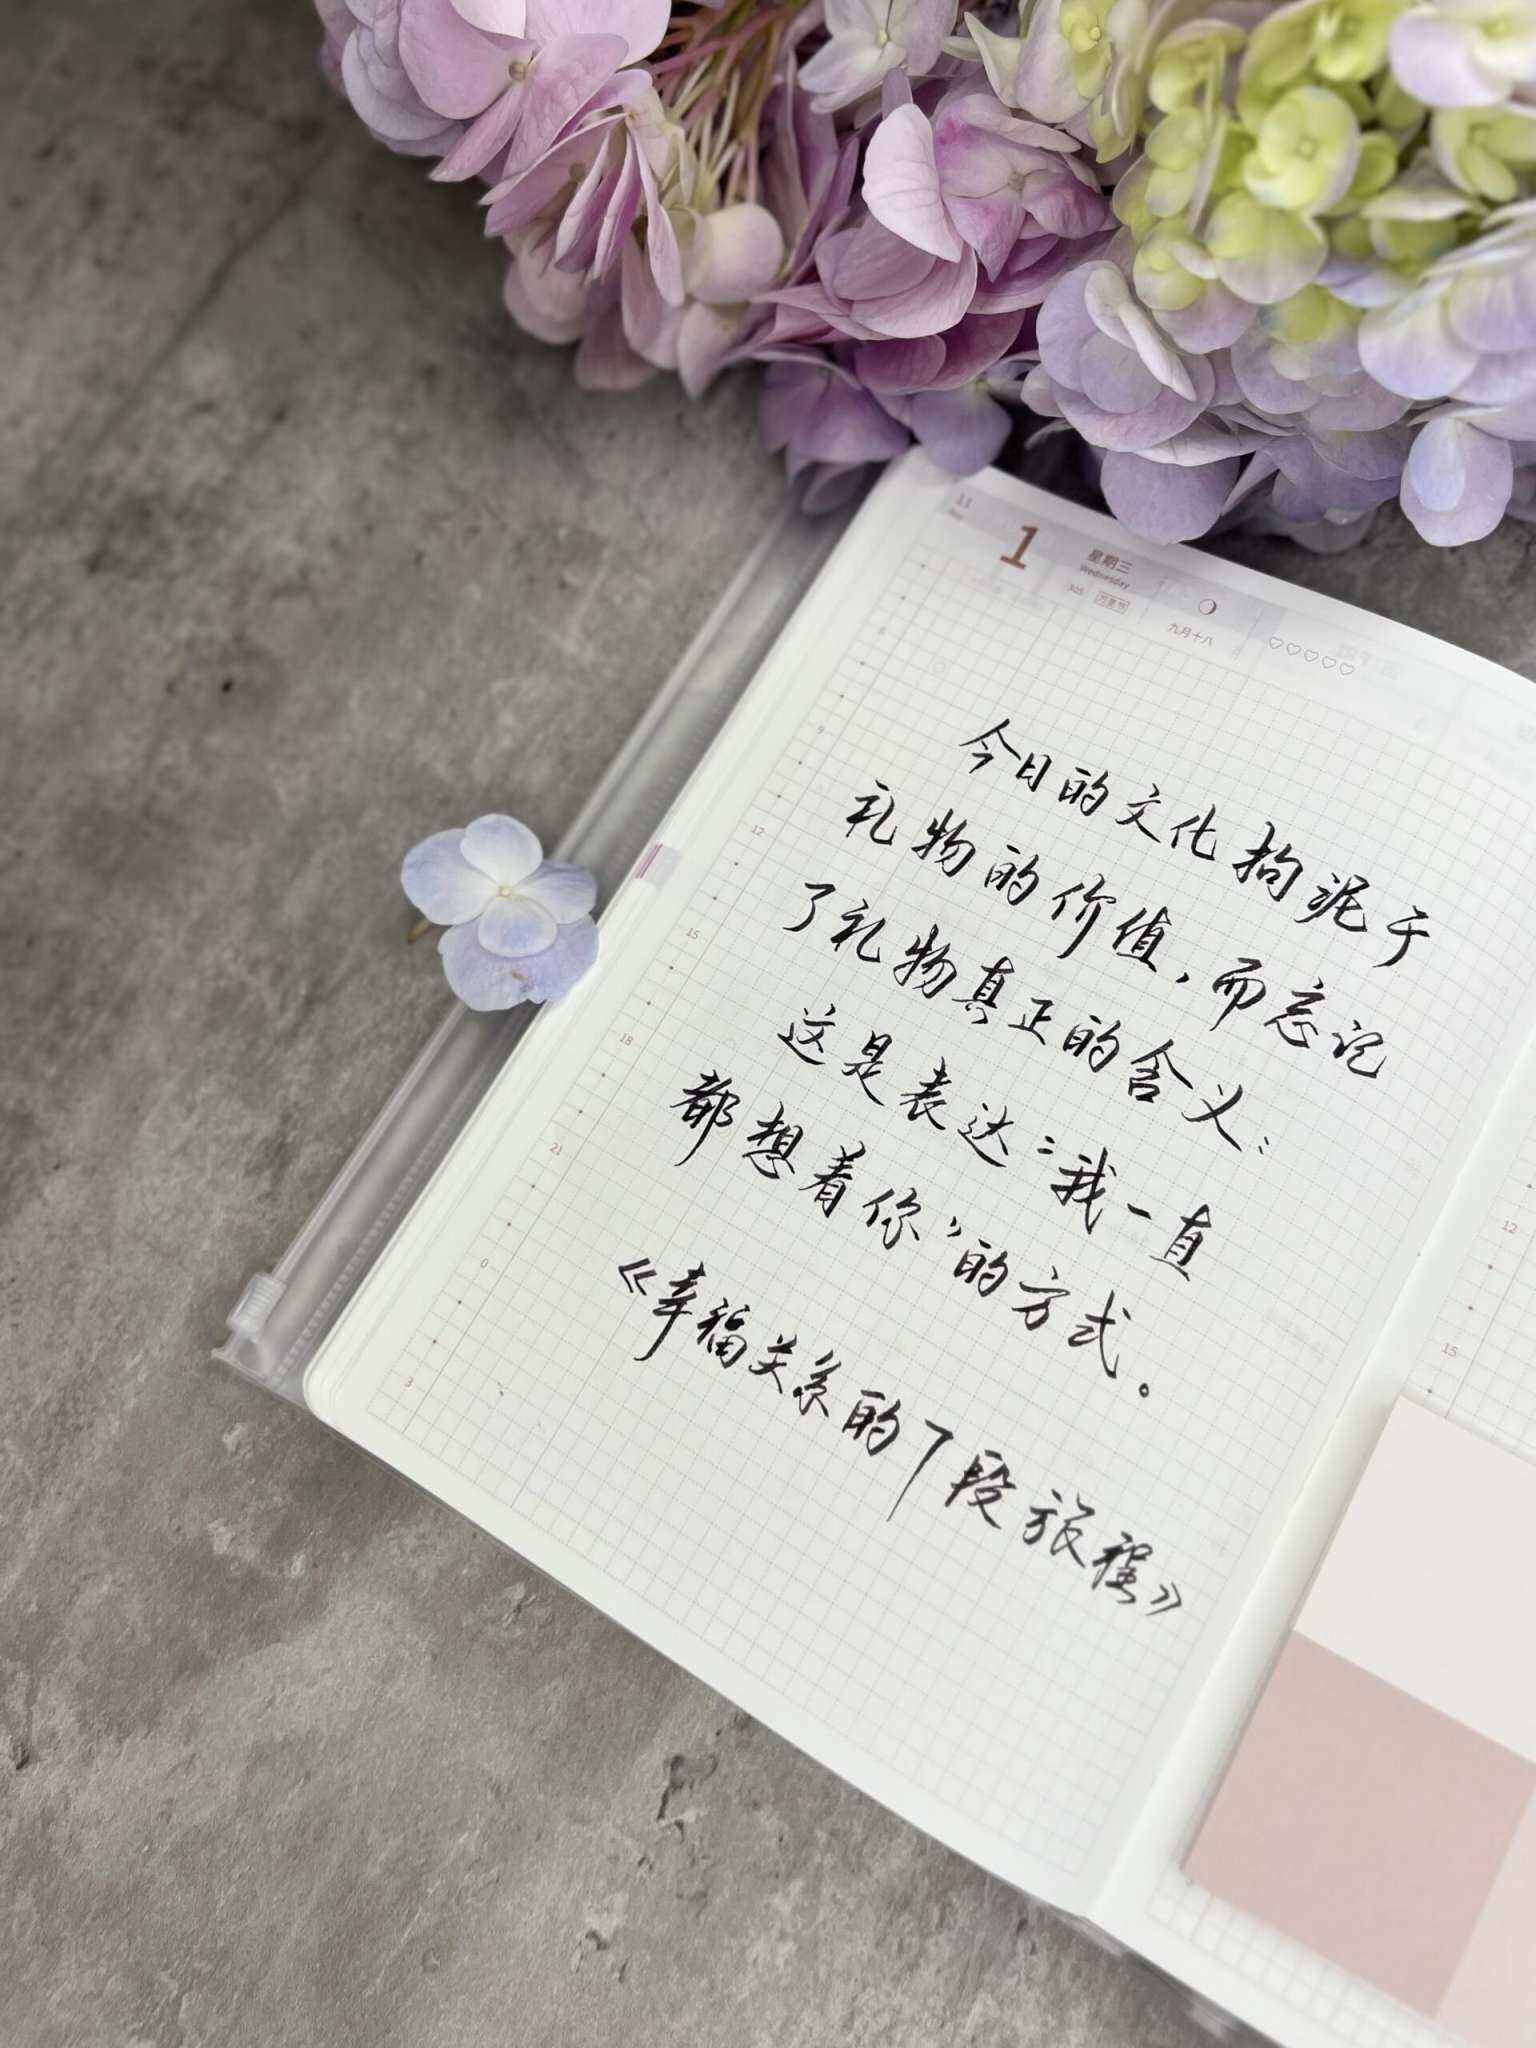 11
Nov
1
星期三
Wednesday
305 万圣节
九月十八
6
9
12
15
18
21
0
3
今日的文化拘泥于
礼物的价值，而忘记
了礼物真正的含义：
这是表达“我一直
都想着你”的方式。
《幸福关系的7段旅程》
12
15